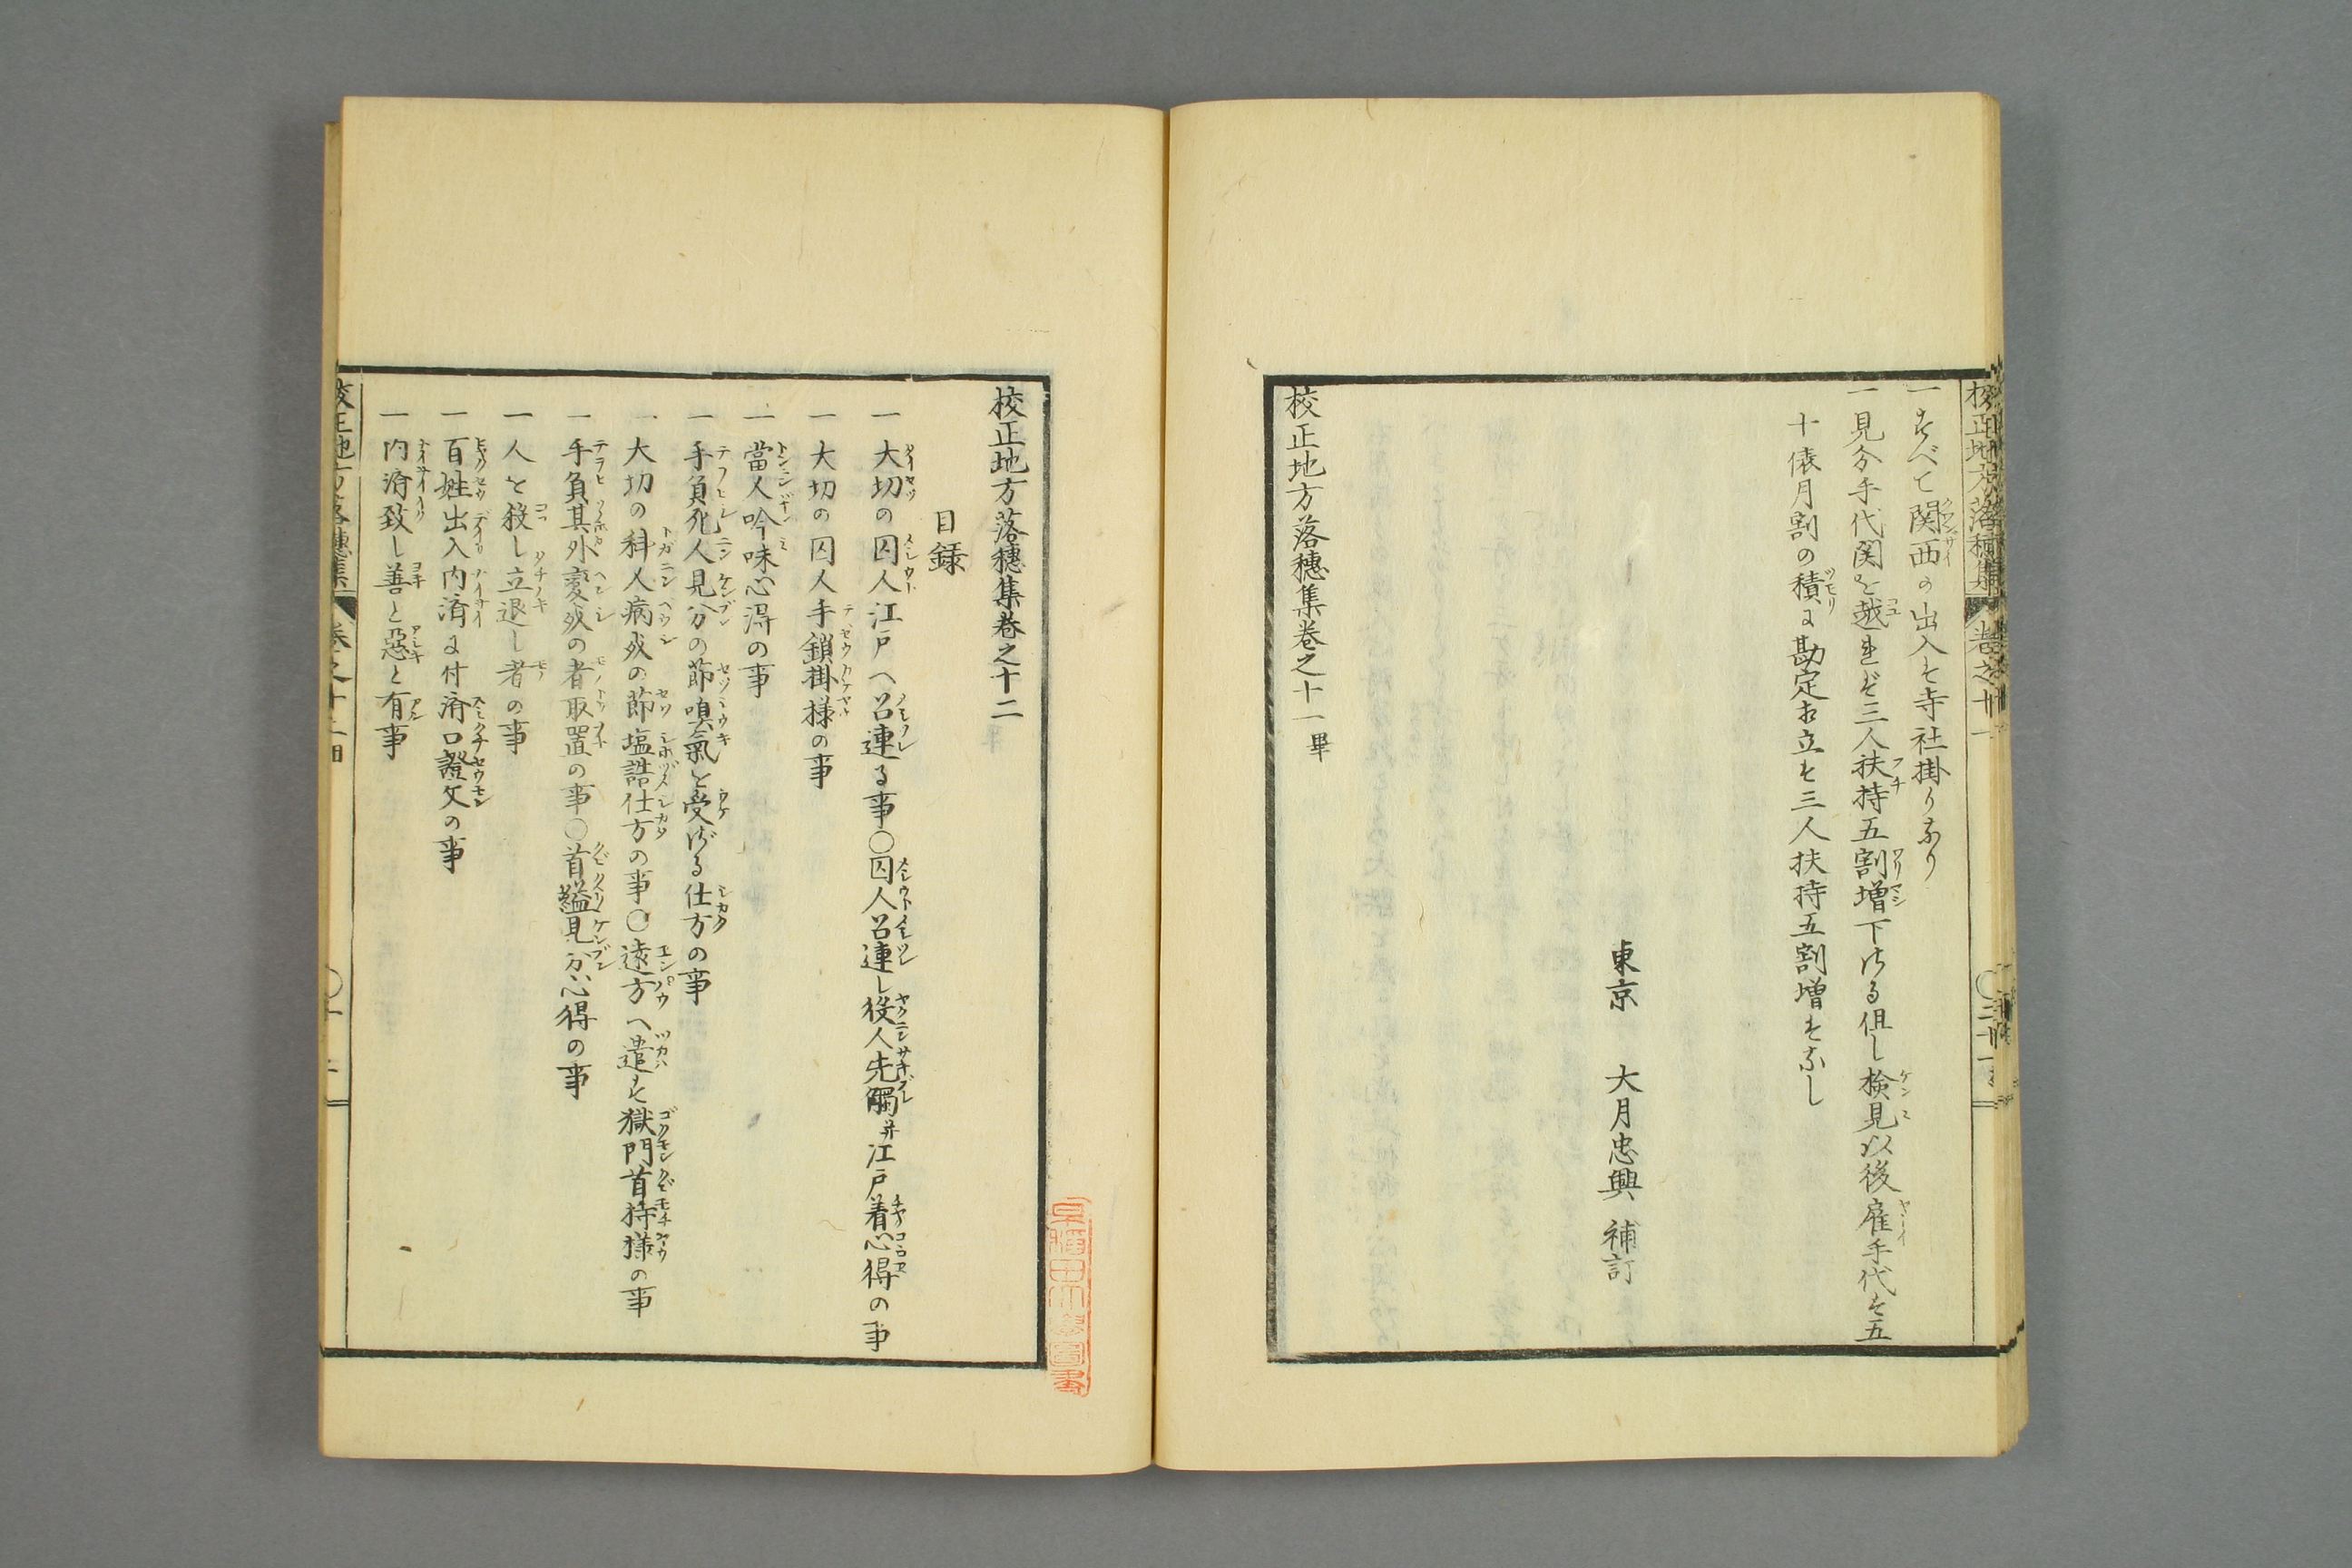 一すべて関西の出入は寺社掛りなり
一見分手代関を越れば三人扶持五割増下さる但し検見以後雇手代は五
十俵月割の積に勘定相立は三人扶持五割増はなし
東京 大月忠興 補訂
校正地方落穂集巻之十一畢
校正地方落穂集巻之十二
目録
一 大切の囚人江戸へ召連る事○囚人召連し役人先觸并江戸着心得の事
一 大切の囚人手鎖掛様の事
一 當人吟味心得の事
一 手負死人見分の節嗅氣を受ざる仕方の事
一 大切の科人病死の節塩詰仕方の事○遠方へ遣す獄門首持様の事
一 手負其外変死の者取置の事○首縊見分心得の事
一 人を殺し立退し者の事
一 百姓出入内済に付済口證文の事
一 内済致し善と惡と有事
早稲田大學圖書